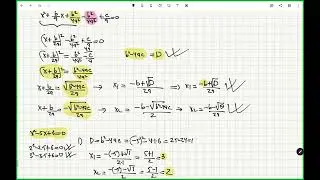 x² + b/a x + b²/4a² - b²/4a² + c/a = 0
(x + b/2a)² = b²/4a² - c/a
(x + b/2a)² = b²-4ac/4a² b²-4ac = D
x + b/2a = √b²-4ac/2a → x₁ = -b+√D/2a → x₁ = -b+√D/2a
x + b/2a = -√b²-4ac/2a → x₂ = -b-√b²-4ac/2 → x₂ = -b-√D/2a
x²-5x+6=0 1) D = b²-4ac = (-5)²-4·1·6 = 25-24=1
2²-5·2+6=0
x₁ = -(-5)+√1/2·1 = 5+1/2 = 3
x₂ = -(-5)-√1/2 = 5-1/2 = 2